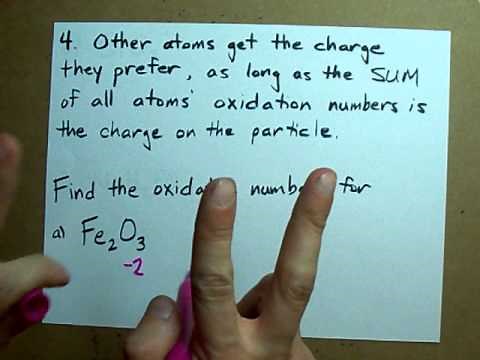 4. Other atoms get the charge
they prefer, as long as the SUM
of all atoms' oxidation numbers is
the charge on the particle.
Find the for
a) Fe₂O₃
-2